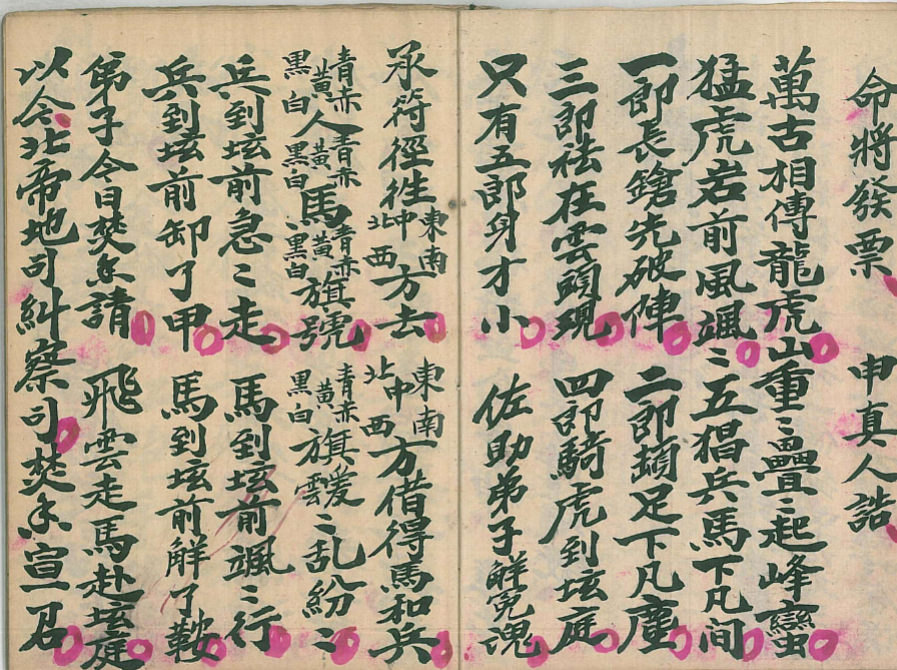 命將發票　申真人誥
萬古相傳龍虎山重〻疊〻起峰蠻
猛虎岩前風颯〻五猖兵馬下凡間
一郎長鎗先破陣　二郎頓足下凡塵
三郎祛在雲頭現　四郎騎虎到坛庭
只有五郎身才小　佐助弟子解冤
承符徑往東南中西北方去　東南中西北方借得馬和兵
青赤黃黑白人青赤黃黑白馬青赤黃黑白旗號　青赤黃黑白旗靉〻乱紛〻
兵到坛前急〻走　馬到坛前颯〻行
兵到坛前卸了甲　馬到坛前解了鞍
弟子今日焚香請　飛雲走馬赴坛庭
以今北帝地司糾察司焚香宣召